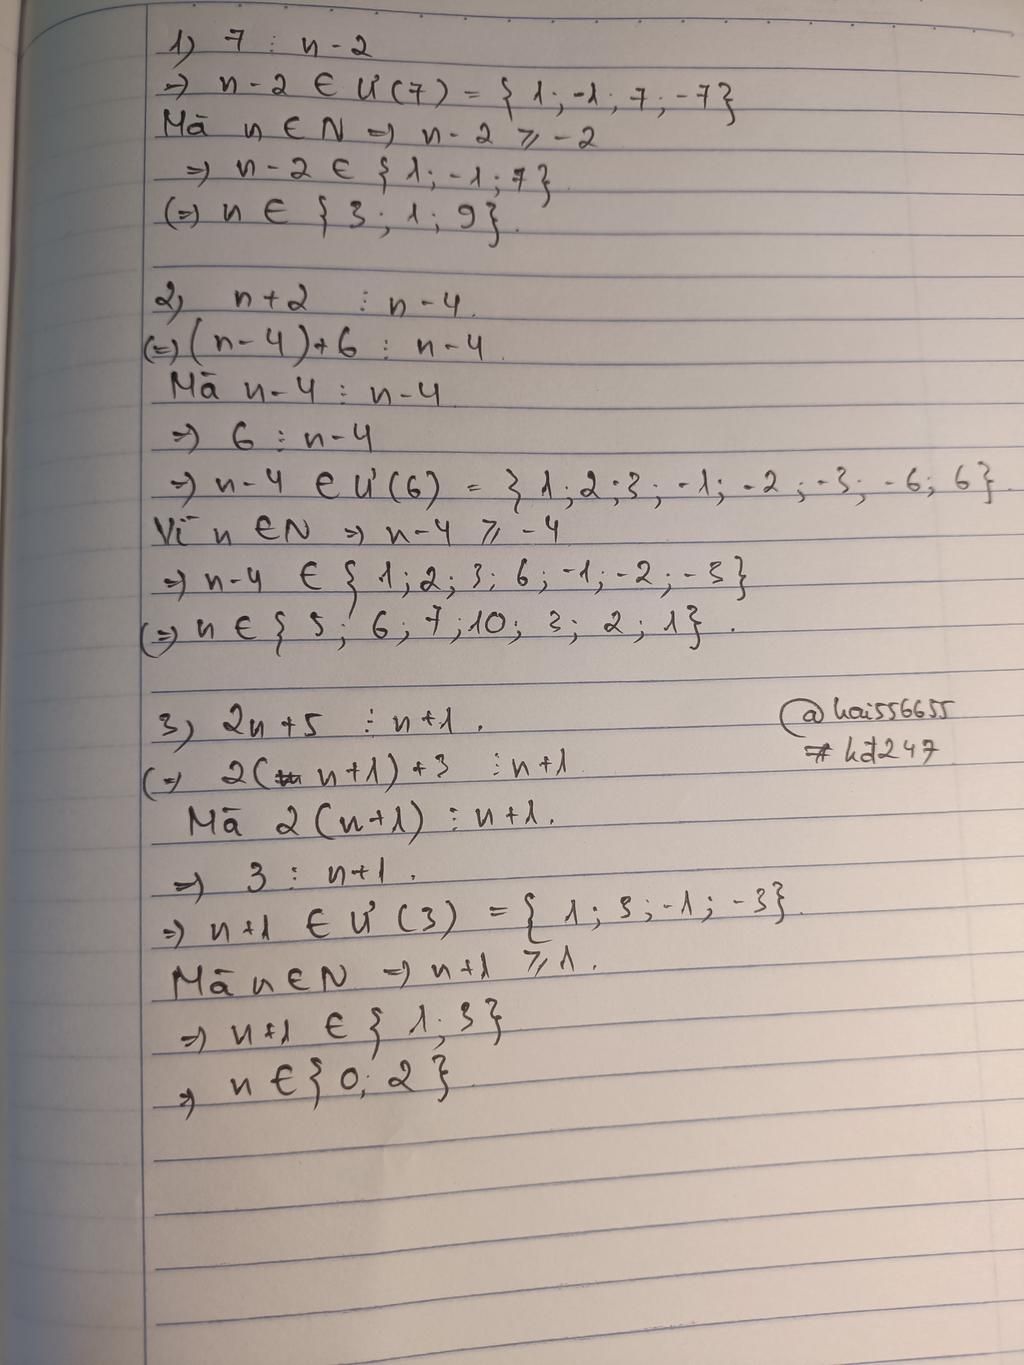 1) 7 ⋮ n - 2
=> n - 2 ∈ Ư(7) = { 1 ; -1 ; 7 ; -7}
Mà n ∈ N => n - 2 ⩾ -2
=> n - 2 ∈ { 1 ; -1 ; 7}
(=) n ∈ { 3 ; 1 ; 9}.
2) n + 2 ⋮ n - 4.
(=) (n - 4) + 6 ⋮ n - 4.
Mà n - 4 ⋮ n - 4
=> 6 ⋮ n - 4
=> n - 4 ∈ Ư(6) = { 1 ; 2 ; 3 ; -1 ; -2 ; -3 ; -6 ; 6}.
Vì n ∈ N => n - 4 ⩾ -4
=> n - 4 ∈ { 1 ; 2 ; 3 ; 6 ; -1 ; -2 ; -3}
(=) n ∈ { 5 ; 6 ; 7 ; 10 ; 3 ; 2 ; 1} .
3) 2n + 5 ⋮ n + 1 .
@hai556655
(=) 2( n + 1) + 3 ⋮ n + 1
# hđ247
Mà 2 (n + 1) ⋮ n + 1.
=> 3 ⋮ n + 1 .
=> n + 1 ∈ Ư (3) = { 1 ; 3 ; -1 ; -3}.
Mà n ∈ N => n + 1 ⩾ 1 .
=> n + 1 ∈ { 1 ; 3}
=> n ∈ { 0 ; 2 }.